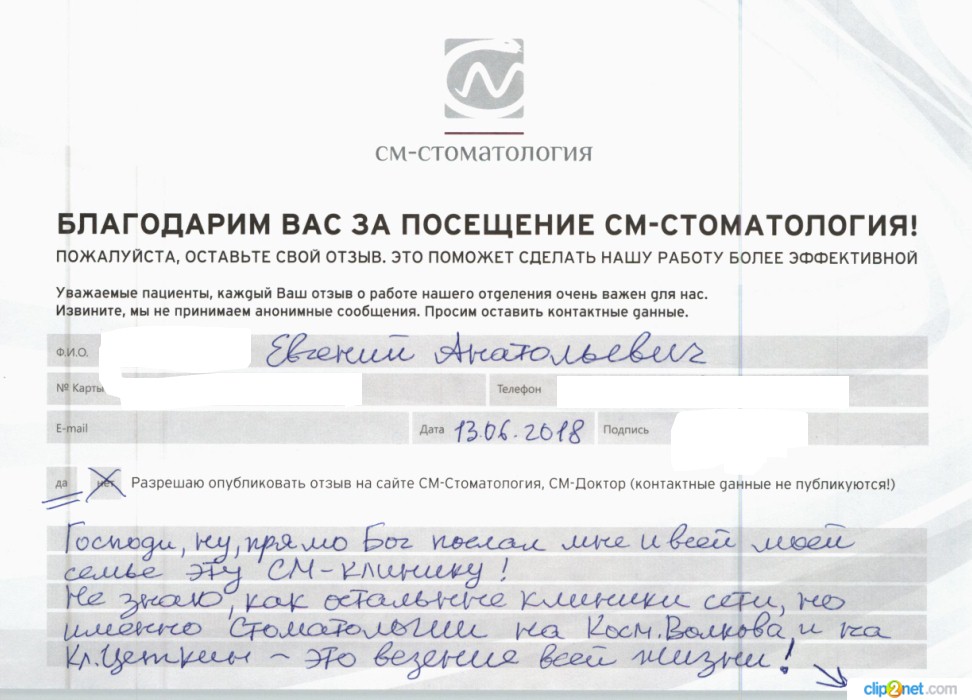 СМ-СТОМАТОЛОГИЯ
БЛАГОДАРИМ ВАС ЗА ПОСЕЩЕНИЕ СМ-СТОМАТОЛОГИЯ!
ПОЖАЛУЙСТА, ОСТАВЬТЕ СВОЙ ОТЗЫВ. ЭТО ПОМОЖЕТ СДЕЛАТЬ НАШУ РАБОТУ БОЛЕЕ ЭФФЕКТИВНОЙ
Уважаемые пациенты, каждый Ваш отзыв о работе нашего отделения очень важен для нас.
Извините, мы не принимаем анонимные сообщения. Просим оставить контактные данные.
Ф.И.О. Евгений Анатольевич
№ Карты Телефон
E-mail Дата 13.06.2018 Подпись
да нет Разрешаю опубликовать отзыв на сайте СМ-Стоматология, СМ-Доктор (контактные данные не публикуются!)
Господи, ну, прямо Бог послал мне и всей моей
семье эту СМ-клинику!
Не знаю, как остальные клиники сети, но
именно Стоматологии на Косм. Волкова, и на
Кл. Цеткин - это везение всей жизни!
clip2net.com